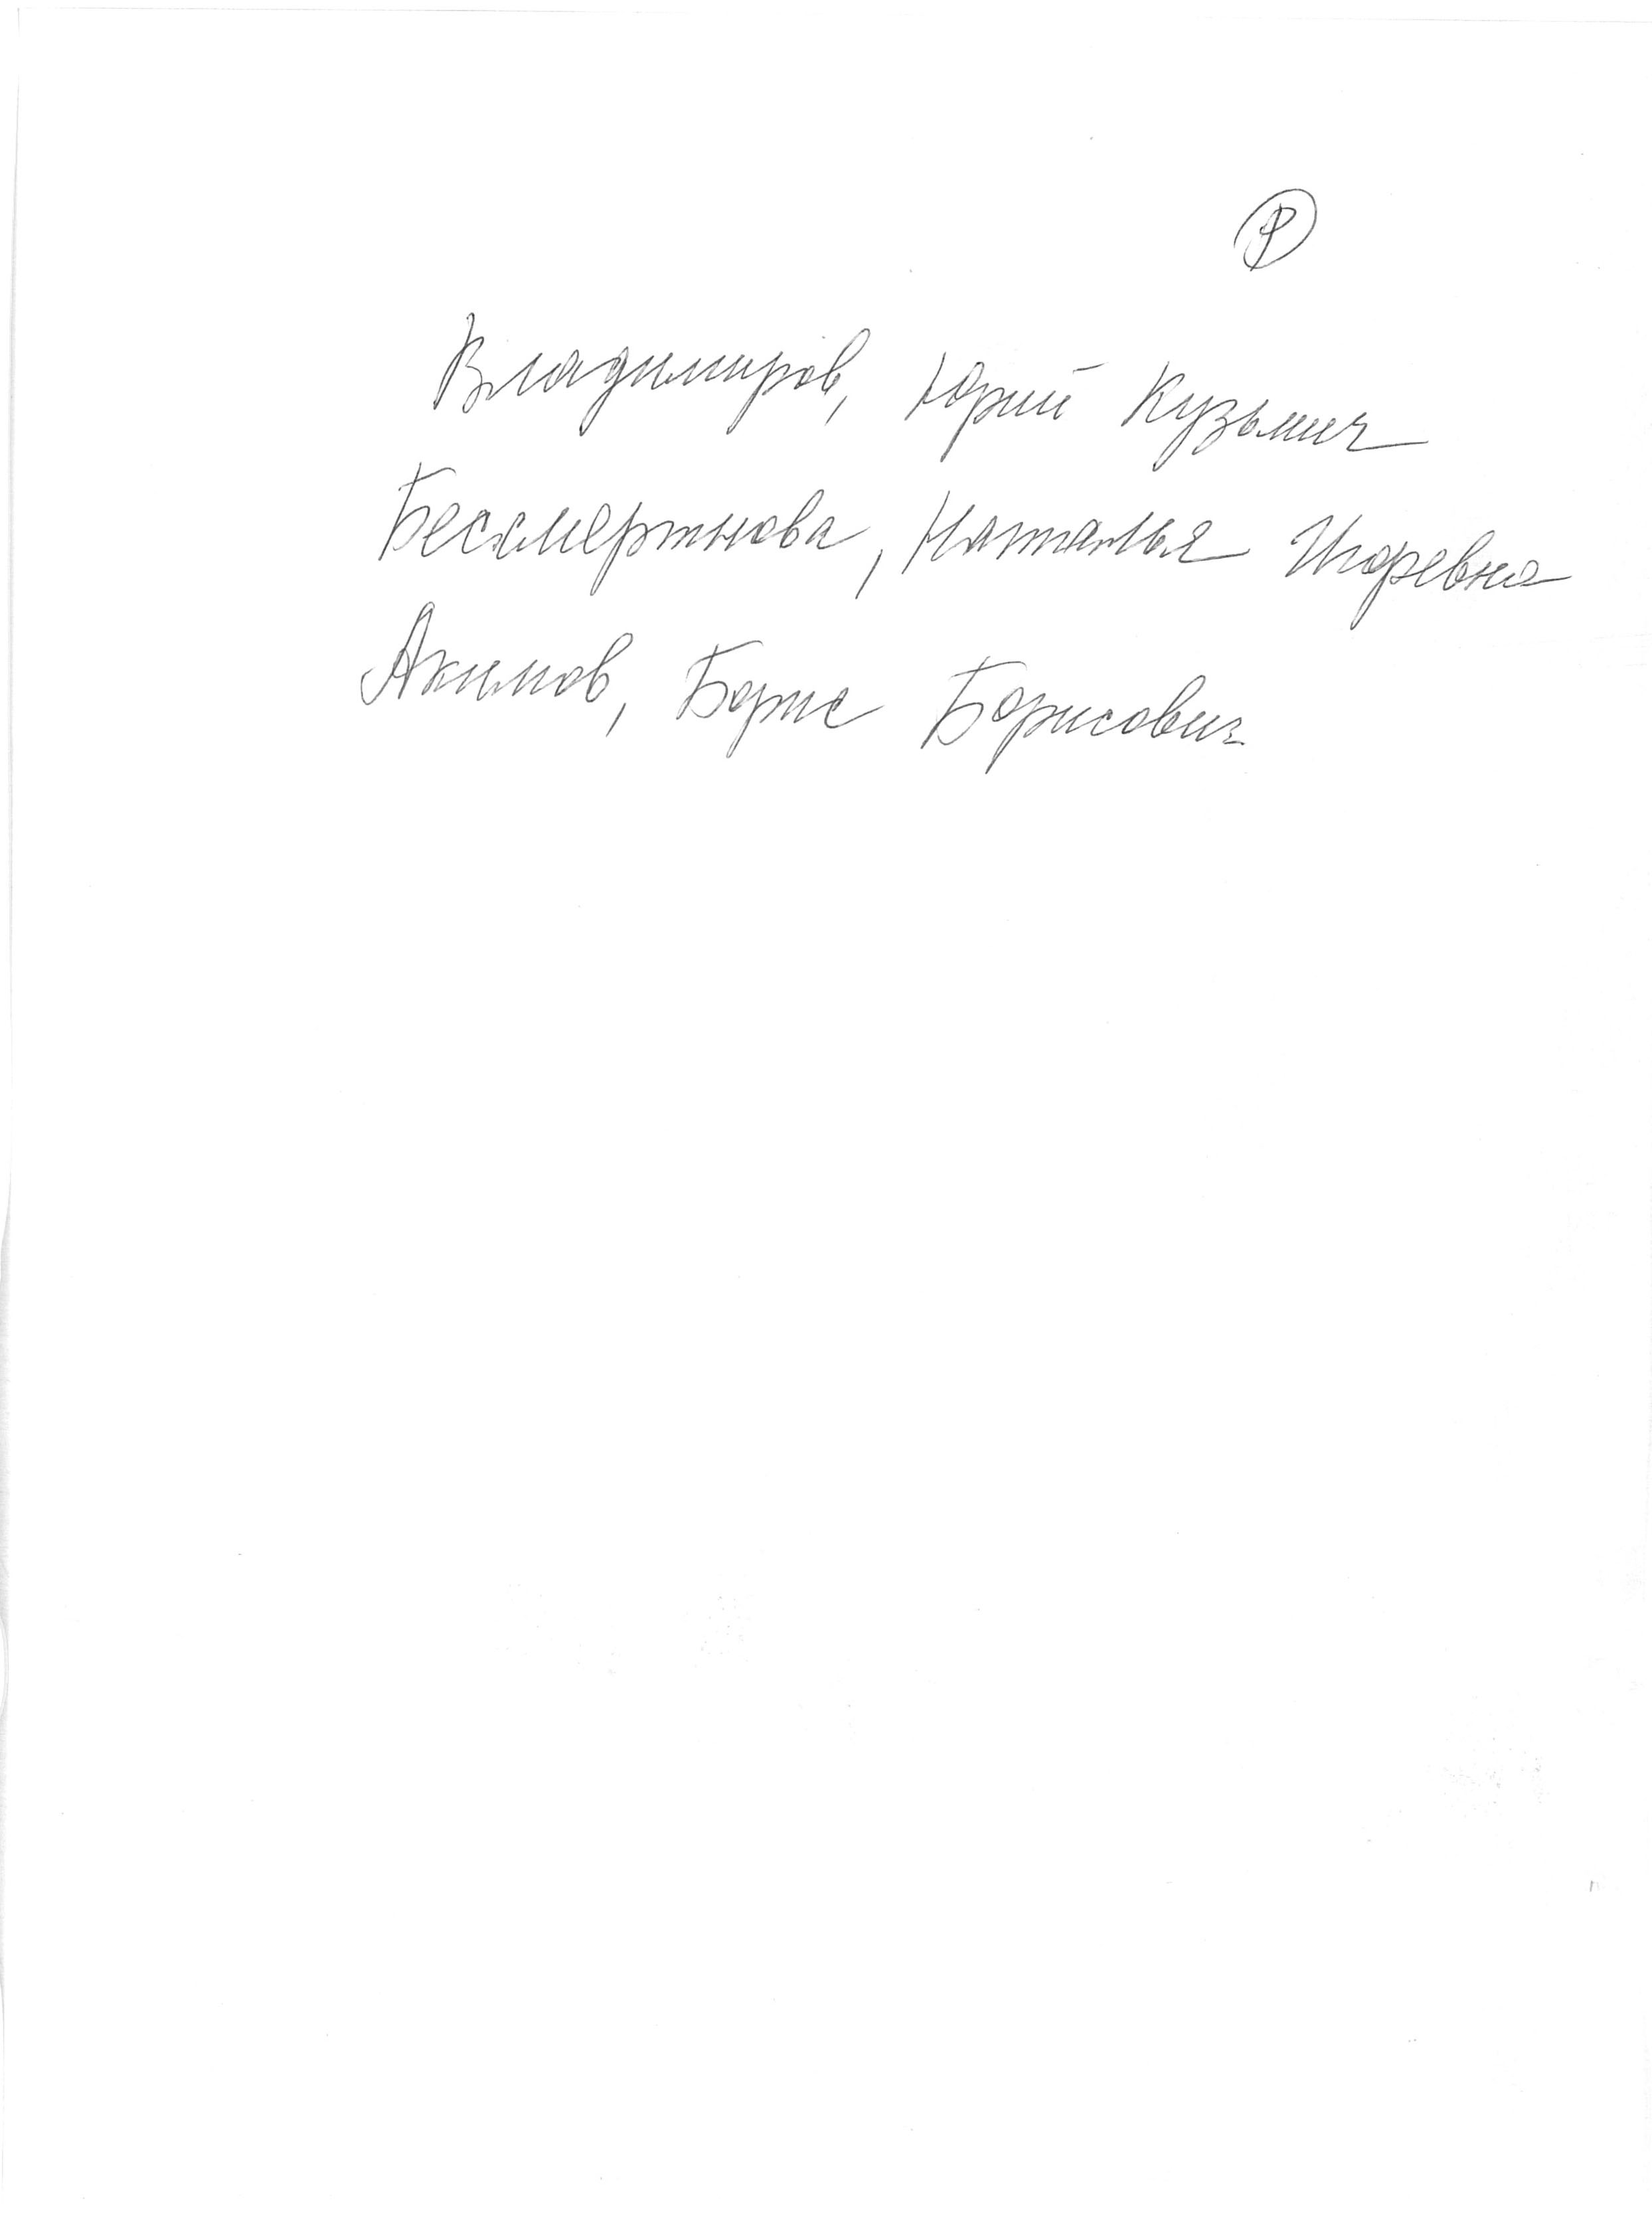 Р
Владимиров, Юрий Кузьмич
Бессмертнова, Наталья Игоревна
Акимов, Борис Борисович